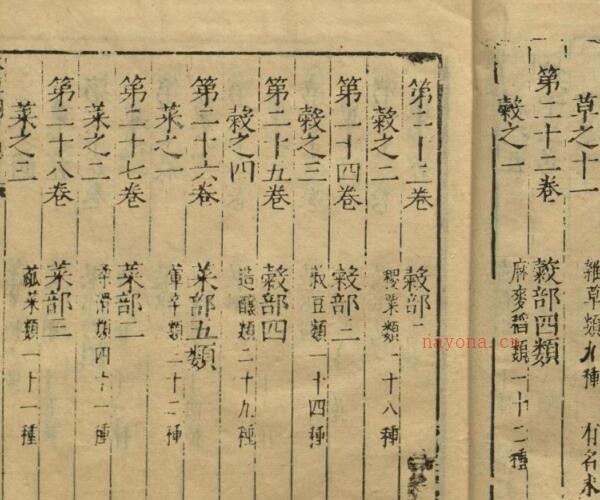 草之十一 雜草類九種 有名未
第二十二卷 穀部四類
穀之一 麻麥稻類一十二種
第二十三卷 穀部二
穀之二 稷粟類一十八種
第二十四卷 穀部三
穀之三 菽豆類一十四種
第二十五卷 穀部四
穀之四 造釀類二十九種
第二十六卷 菜部五類
菜之一 葷辛類三十二種
第二十七卷 菜部二
菜之二 柔滑類四十一種
第二十八卷 菜部三
菜之三 蓏菜類一十一種
nayona.cn